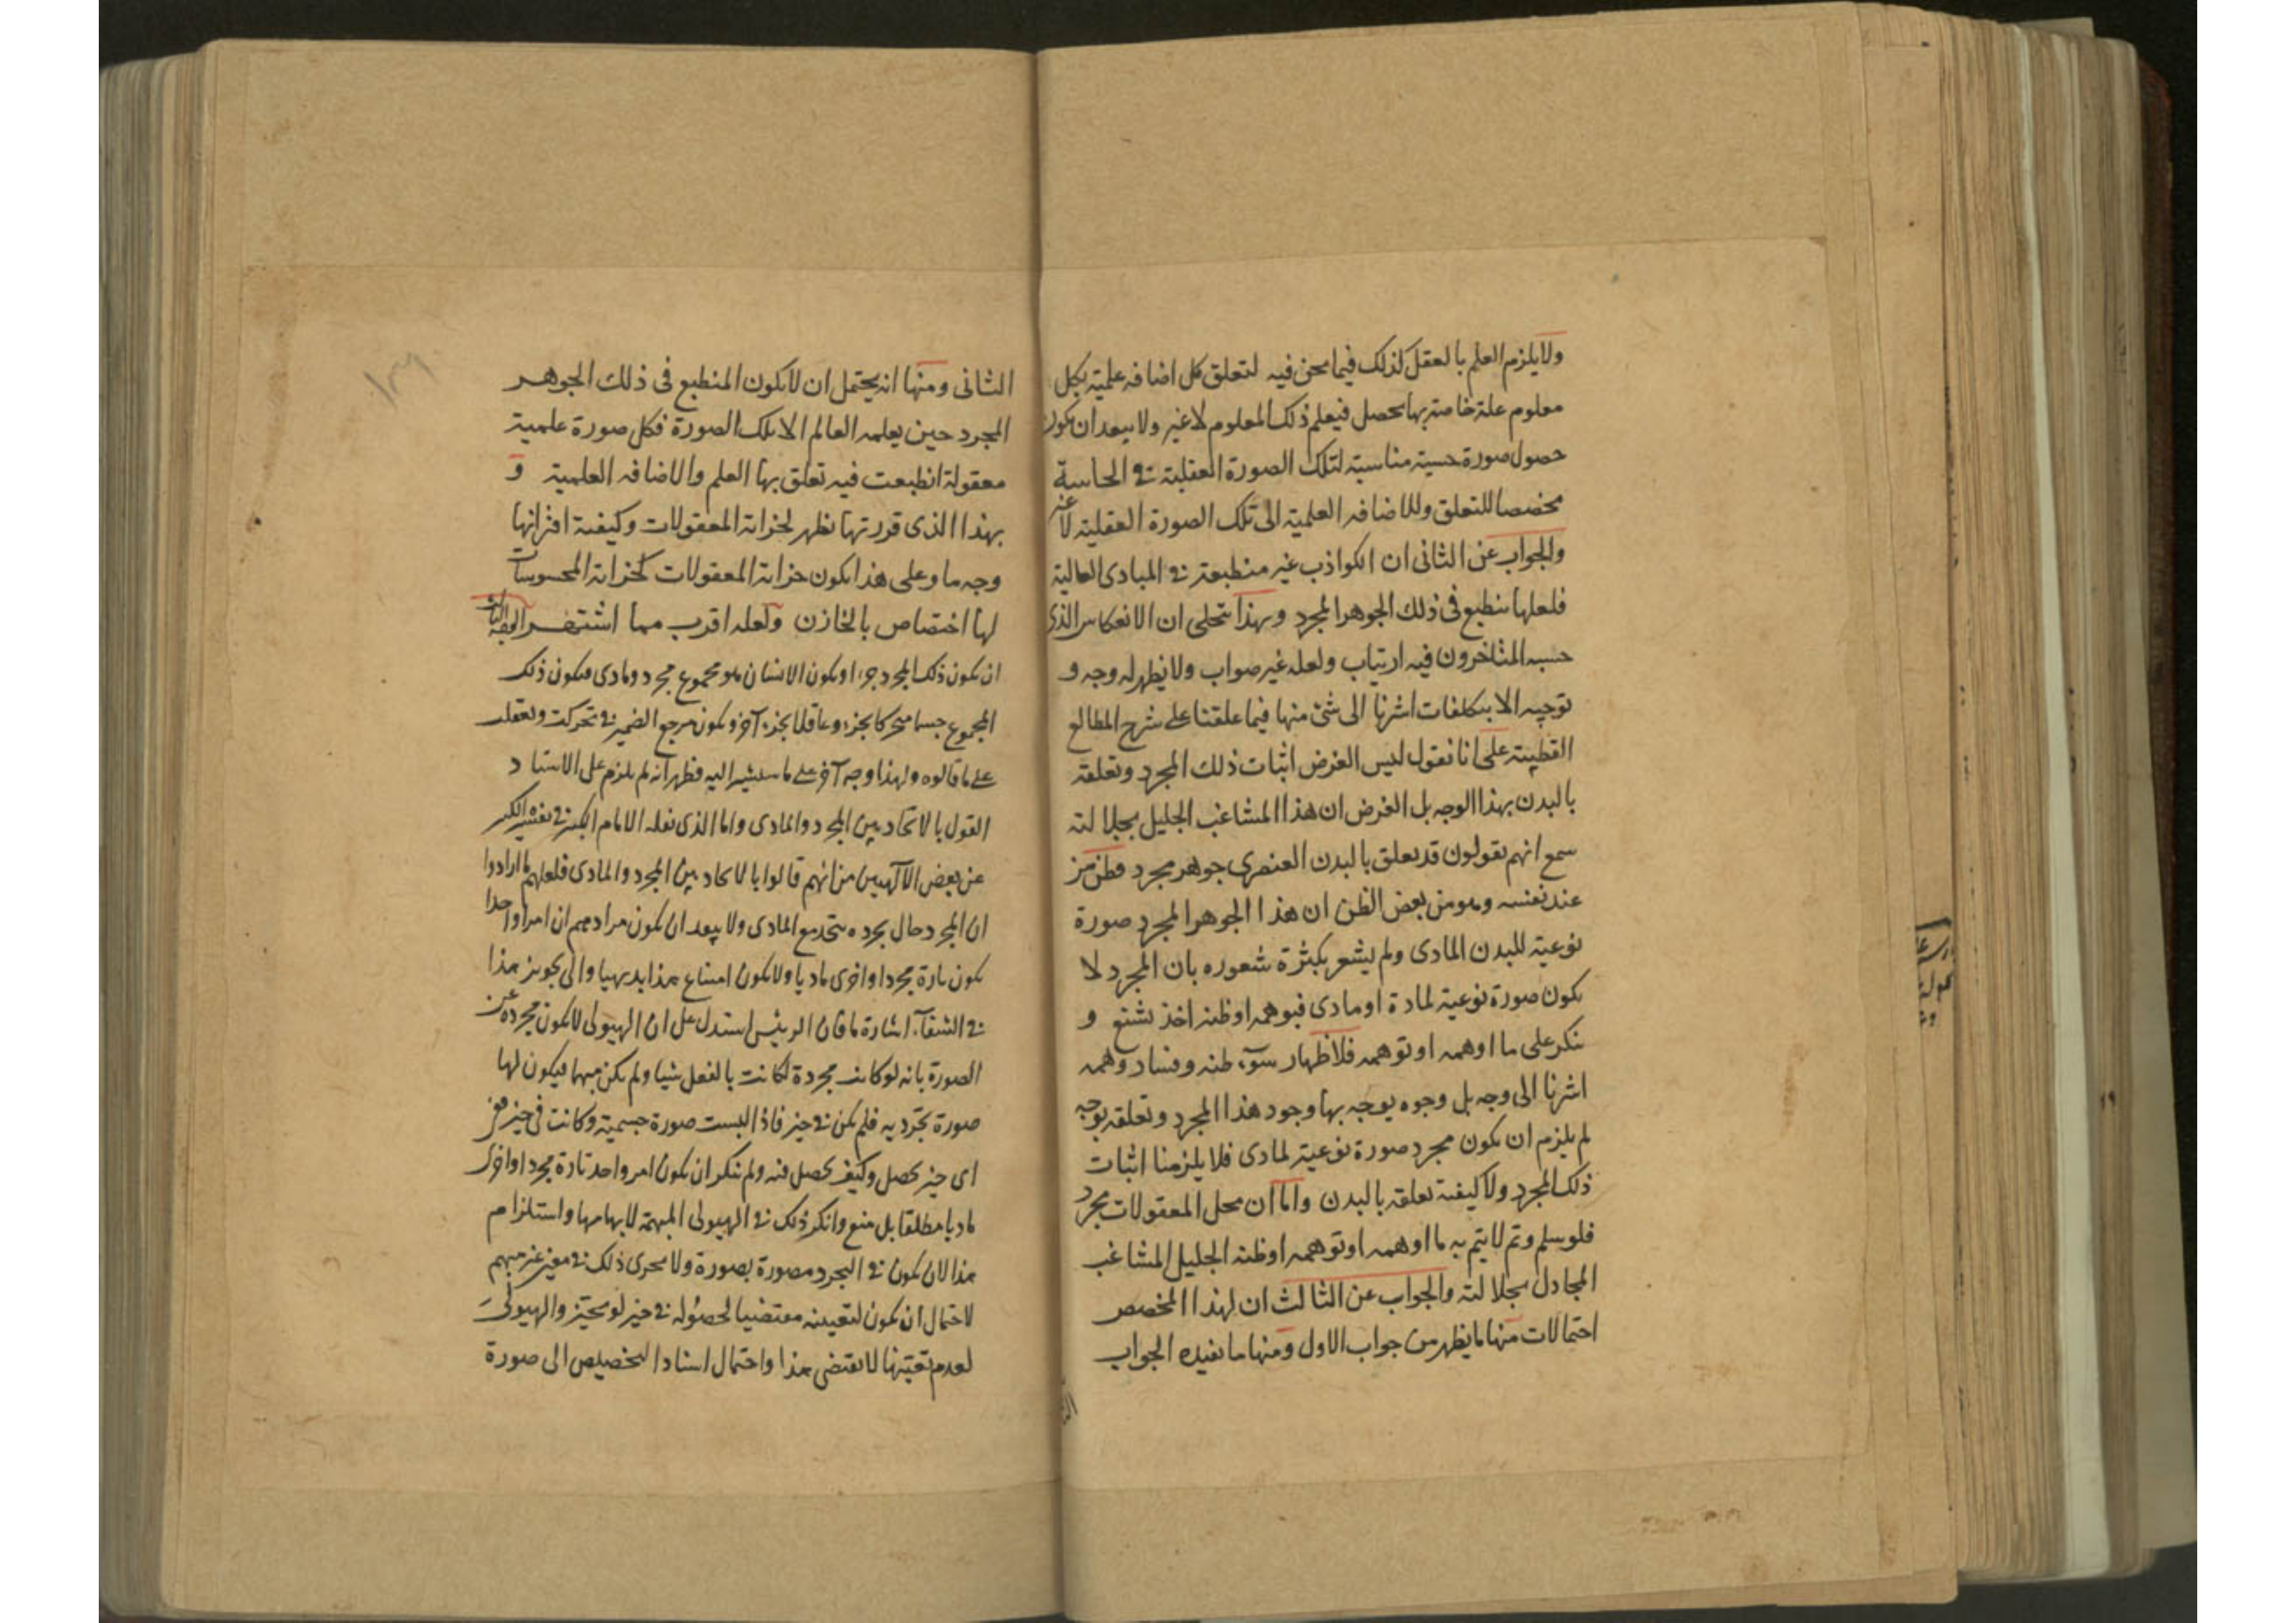 ولا يلزم العلم بالعقل كذلك فيما نحن فيه لتعلق كل اضافه علمية بكل
معلوم علة خاصة بها يحصل فيعلم ذلك المعلوم لا غير ولا يبعد ان يكون
حصول صورة حسية مناسبة لتلك الصورة العقلية في الحاسة
مخصصا للتعلق وللاضافه العلمية الى تلك الصورة العقلية لا غير
والجواب عن الثانى ان الكواذب غير منطبعة في المبادى العالية
فلعلها ينطبع فى ذلك الجوهر المجرد وبهذا يتجلى ان الانعكاس الذى
حسبه المتاخرون فيه ارتياب ولعله غير صواب ولا يظهر له وجه و
توجيه الا بتكلفات اشرنا الى شئ منها فيما علقنا على شرح المطالع
القطبية على انا نقول ليس الغرض اثبات ذلك المجرد وتعلقه
بالبدن بهذا الوجه بل الغرض ان هذا المشاغب الجليل بجلالته
سمع انهم يقولون قد يعلق بالبدن العنصرى جوهر مجرد فظن من
عند نفسه وهو من بعض الظن ان هذا الجوهر المجرد صورة
نوعية للبدن المادى ولم يشعر بكثرة شعوره بان المجرد لا
يكون صورة نوعية لمادة او مادى فبوهمه او ظنه اخذ يشنع و
ينكر على ما اوهمه او توهمه فلاظهار سوء ظنه وفساد وهمه
اشرنا الى وجه بل وجوه يوجه بها وجود هذا المجرد وتعلقه بوجه
لم يلزم ان يكون مجرد صورة نوعية لمادى فلا يلزمنا اثبات
ذلك المجرد ولا كيفية تعلقه بالبدن واما ان محل المعقولات مجرد
فلو سلم وتم لا يتم به ما اوهمه او توهمه او ظنه الجليل المشاغب
المجادل بجلالته والجواب عن الثالث ان لهذا المخصص
احتمالات منها ما يظهر من جواب الاول ومنها ما يفيده الجواب
الثانى ومنها انه يحتمل ان لا يكون المنطبع فى ذلك الجوهر
المجرد حين يعلمه العالم الا تلك الصورة فكل صورة علمية
معقولة انطبعت فيه تعلق بها العلم والاضافه العلمية و
بهذا الذى قررتها يظهر لخزانة المعقولات وكيفية افترانها
وجه ما وعلى هذا يكون خزانة المعقولات كخزانة المحسوسات
لها اختصاص بالخازن ولعله اقرب مما اشتهر الوجه الثالث
ان يكون ذلك المجرد جزءا ويكون الانسان هو مجموع مجرد ومادى فيكون ذلك
المجموع جسما متحركا بجزء وعاقلا بجزء آخر ويكون مرجع الضمير في تحركت وتعقلت
على ما قالوه ولهذا وجه آخر على ما سنشير اليه فظهر انه لم يلزم على الاستاد
القول بالاتحاد بين المجرد والمادى واما الذى نقله الامام الكبير في تفسيره الكبير
عن بعض الآلهيين من انهم قالوا بالاتحاد بين المجرد والمادى فلعلهم ما ارادوا
ان المجرد حال تجرده متحد مع المادى ولا يبعد ان يكون مرادهم ان امرا واحدا
يكون تارة مجردا واخرى ماديا ولا يكون امتناع هذا بديهيا والى تجويز هذا
في الشفآء اشارة ما فان الرئيس استدل على ان الهيولى لا يكون مجردة عن
الصورة بانه لو كانت مجردة لكانت بالفعل شيا ولم يكن مبهما فيكون لها
صورة تجردية فلم يكن في حيز فاذا البست صورة جسمية وكانت فى حيز ففى
اى حيز يحصل وكيف يحصل فيه ولم ينكر ان يكون امر واحد تارة مجردا واخرى
ماديا مطلقا بل منع وانكر ذلك في الهيولى المبهمة لابهامها واستلزام
هذا لان يكون في التجرد مصورة بصورة ولا يجرى ذلك في معين غير مبهم
لاحتمال ان يكون لتعينه مقتضيا لحصوله في حيز لو تحيز والهيولى
لعدم تعينها لا يقتضى هذا واحتمال اسناد التخصيص الى صورة